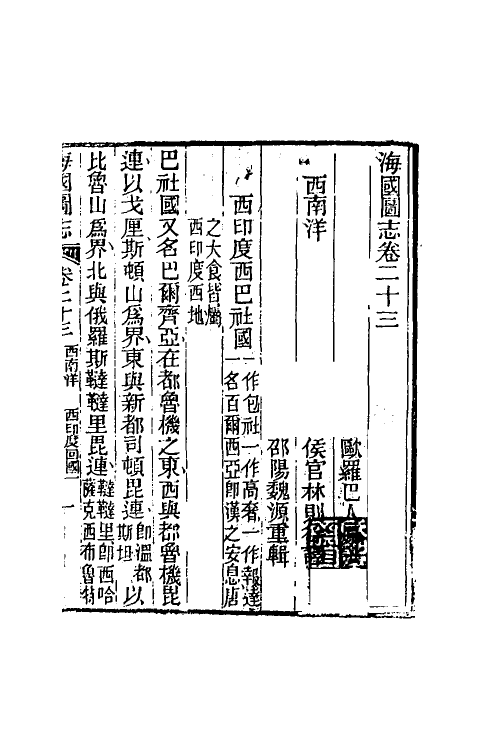 海國圖志卷二十三
歐羅巴人
西南洋
侯官林則徐譯
邵陽魏源重輯
西印度西巴社國一作包社一作高奢一作報達
一名百爾西亞卽漢之安息唐
之大食皆屬
西印度西地
巴社國又名巴爾齊亞在都魯機之東西與都魯機毘
連以戈厘斯頓山爲界東與新都司頓毘連卽溫都
斯坦以
比魯山爲界北與俄羅斯韃韃里毘連韃韃里卽西哈
薩克西布魯特
海國圖志 卷二十三 西南洋 西印度回國一 一